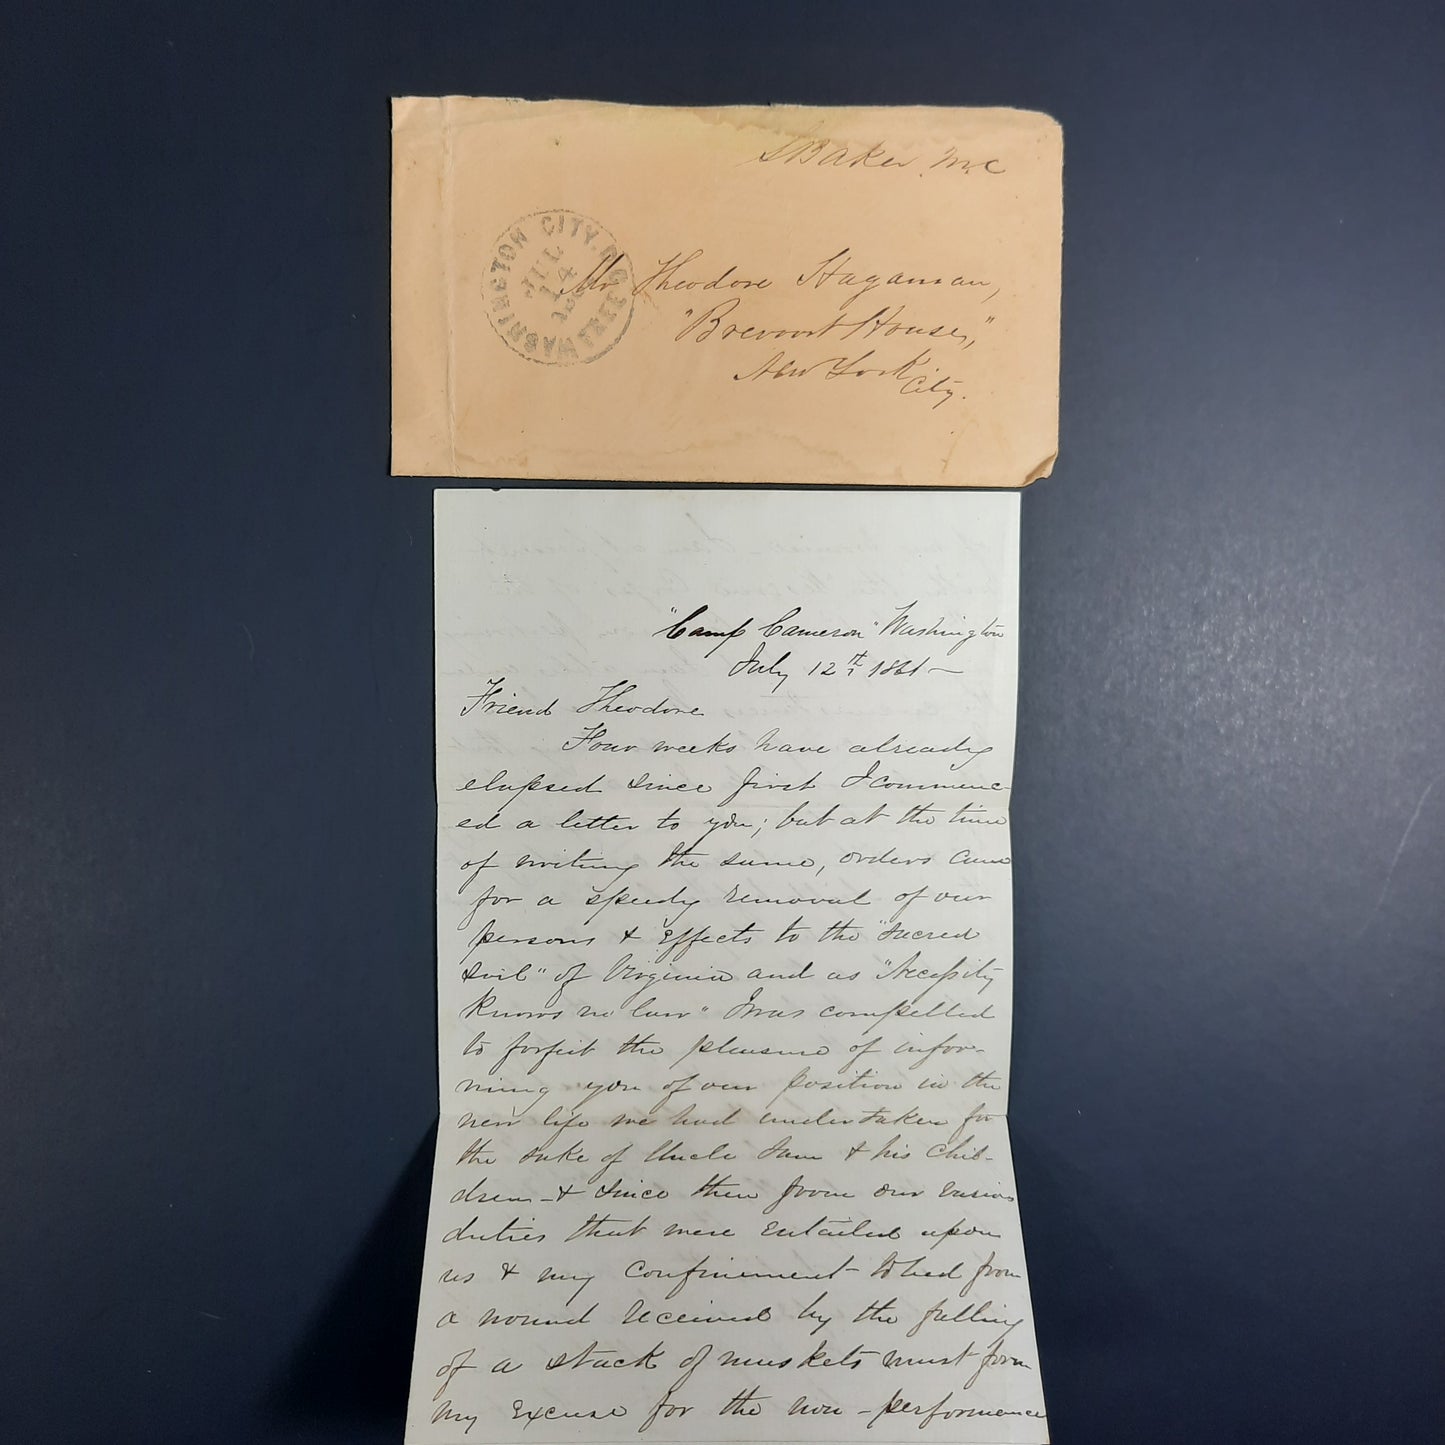 S Baker M.C
WASHINGTON CITY. D.C.
JUL
14
1861
FREE
Mr Theodore Hagaman,
"Brevoort House,"
New York
City.
"Camp Cameron" Washington
July 12th, 1861 —
Friend Theodore
Four weeks have already
elapsed since first I commenc-
ed a letter to you; but at the time
of writing the same, orders came
for a speedy removal of our
persons & Effects to the "Sacred
Soil" of Virginia and as "Necessity
Knows no law" I was compelled
to forfeit the pleasure of infor-
ming you of our position in the
new life we had undertaken for
the sake of Uncle Sam & his Chil-
dren - & since then from our various
duties that were Entailed upon
us & my Confinement to bed from
a wound received by the falling
of a stack of muskets must form
my Excuse for the non-performance